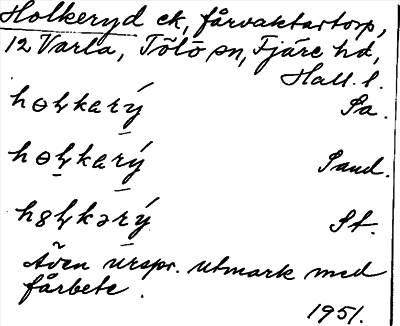 Holkeryd ck, fårvaktartorp,
12 Varla, Tölö sn, Fjäre hd,
Hall. l.
hɵⱨkarý Sa.
hɵⱨkarý Sand.
h8ⱨkərý St.
Även urspr. utmark med
fårbete.
1951.